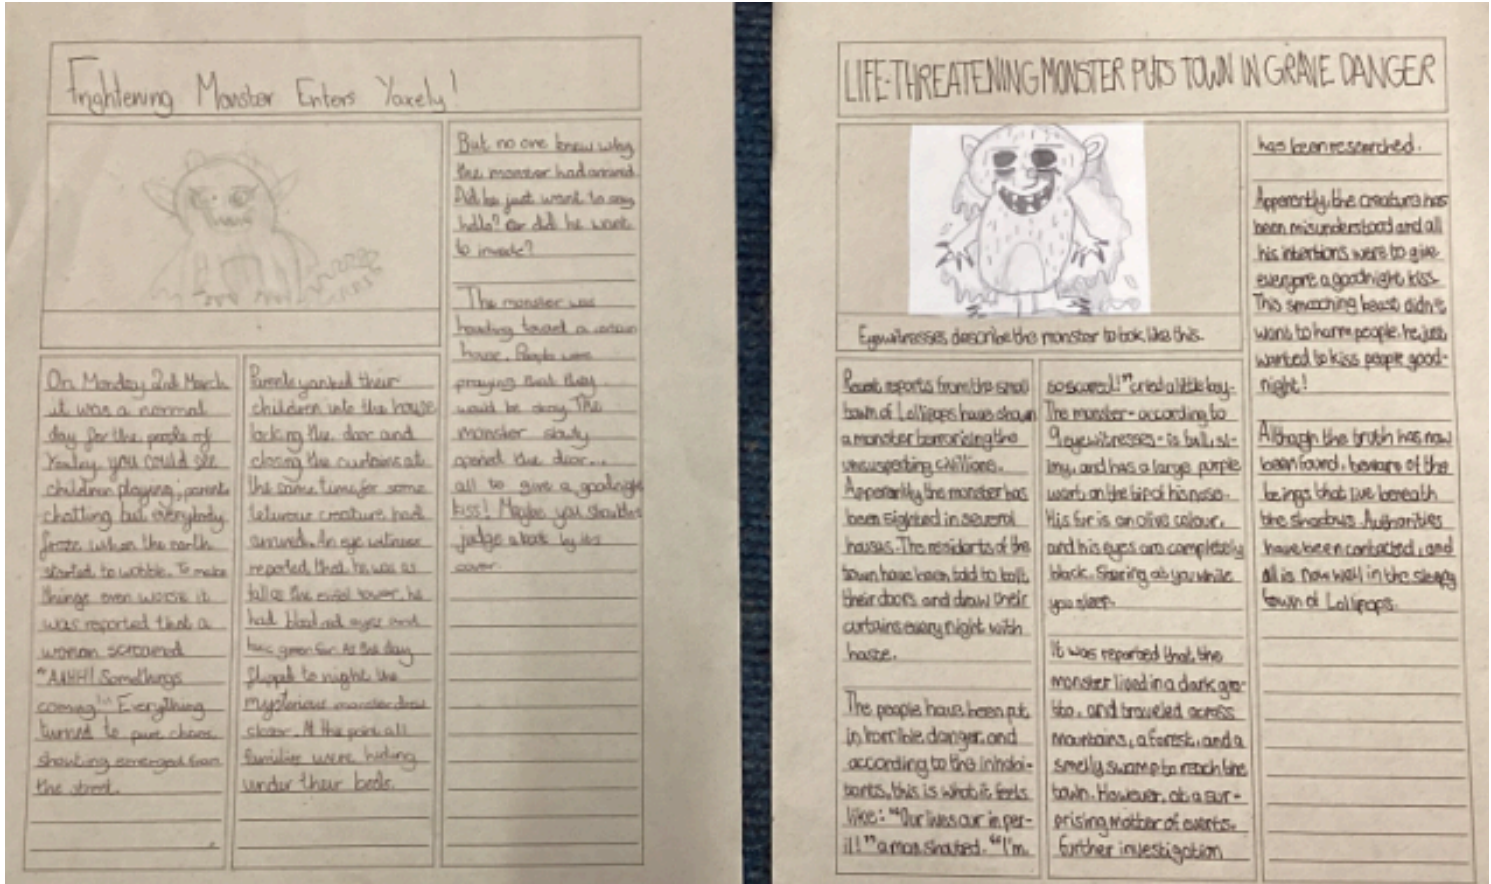 Frightening Monster Enters Yaxely!
On Monday 2nd March
it was a normal
day for the people of
Yaxley you could see
children playing, parents
chatting but everybody
froze when the earth
started to wobble. To make
things even worse it
was reported that a
woman screamed
"AAHH! Somethings
coming!" Everything
turned to pure chaos
shouting emerged from
the street.
Parents yanked their
children into the house
locking the door and
closing the curtains at
the same time, for some
creature had
arrived. An eye witness
reported that he was as
tall as the eifel tower, he
had blood red eyes and
green fur. As the day
flipped to night the
mysterious monster drew
closer. At the point all
families were hiding
under their beds.
But no one knew why
the monster had arrived.
Did he just want to say
hello? Or did he want
to invade?
The monster was
heading toward a certain
house. People were
praying that they
would be okay. The
monster slowly
opened the door...
all to give a goodnight
kiss! Maybe you shouldnt
judge a book by its
cover.
LIFE-THREATENING MONSTER PUTS TOWN IN GRAVE DANGER
Eyewitnesses describe the monster to look like this.
Recent reports from the small
town of Lollipops have shown
a monster terrorising the
unsuspecting
Apparently the monster has
been sighted in several
houses. The residents of the
town have been told to bolt
their doors and draw their
curtains every night with
haste.
The people have been put
in horrible danger, and
according to the inhabi-
tants, this is what it feels
like: "Our lives our in per-
il!" a man shouted. "I'm
so scared!" cried a little boy.
The monster - according to
9 eyewitnesses - is tall, sl-
imy, and has a large purple
wart on the tip of his nose.
His fur is an olive colour,
and his eyes are completely
black. Staring at you while
you sleep.
It was reported that the
monster lived in a dark gro-
tto, and traveled across
mountains, a forest, and a
smelly swamp to reach the
town. However, at a sur-
prising matter of events,
further investigation
has been researched.
Apparently, the creature has
been misunderstood and all
his intentions were to give
everyone a goodnight kiss.
This smooching beast didn't
want to harm people, he just
wanted to kiss people good-
night!
Although the truth has now
been found, beware of the
beings that live beneath
the shadows. Authorities
have been contacted, and
all is now well in the sleepy
town of Lollipops.